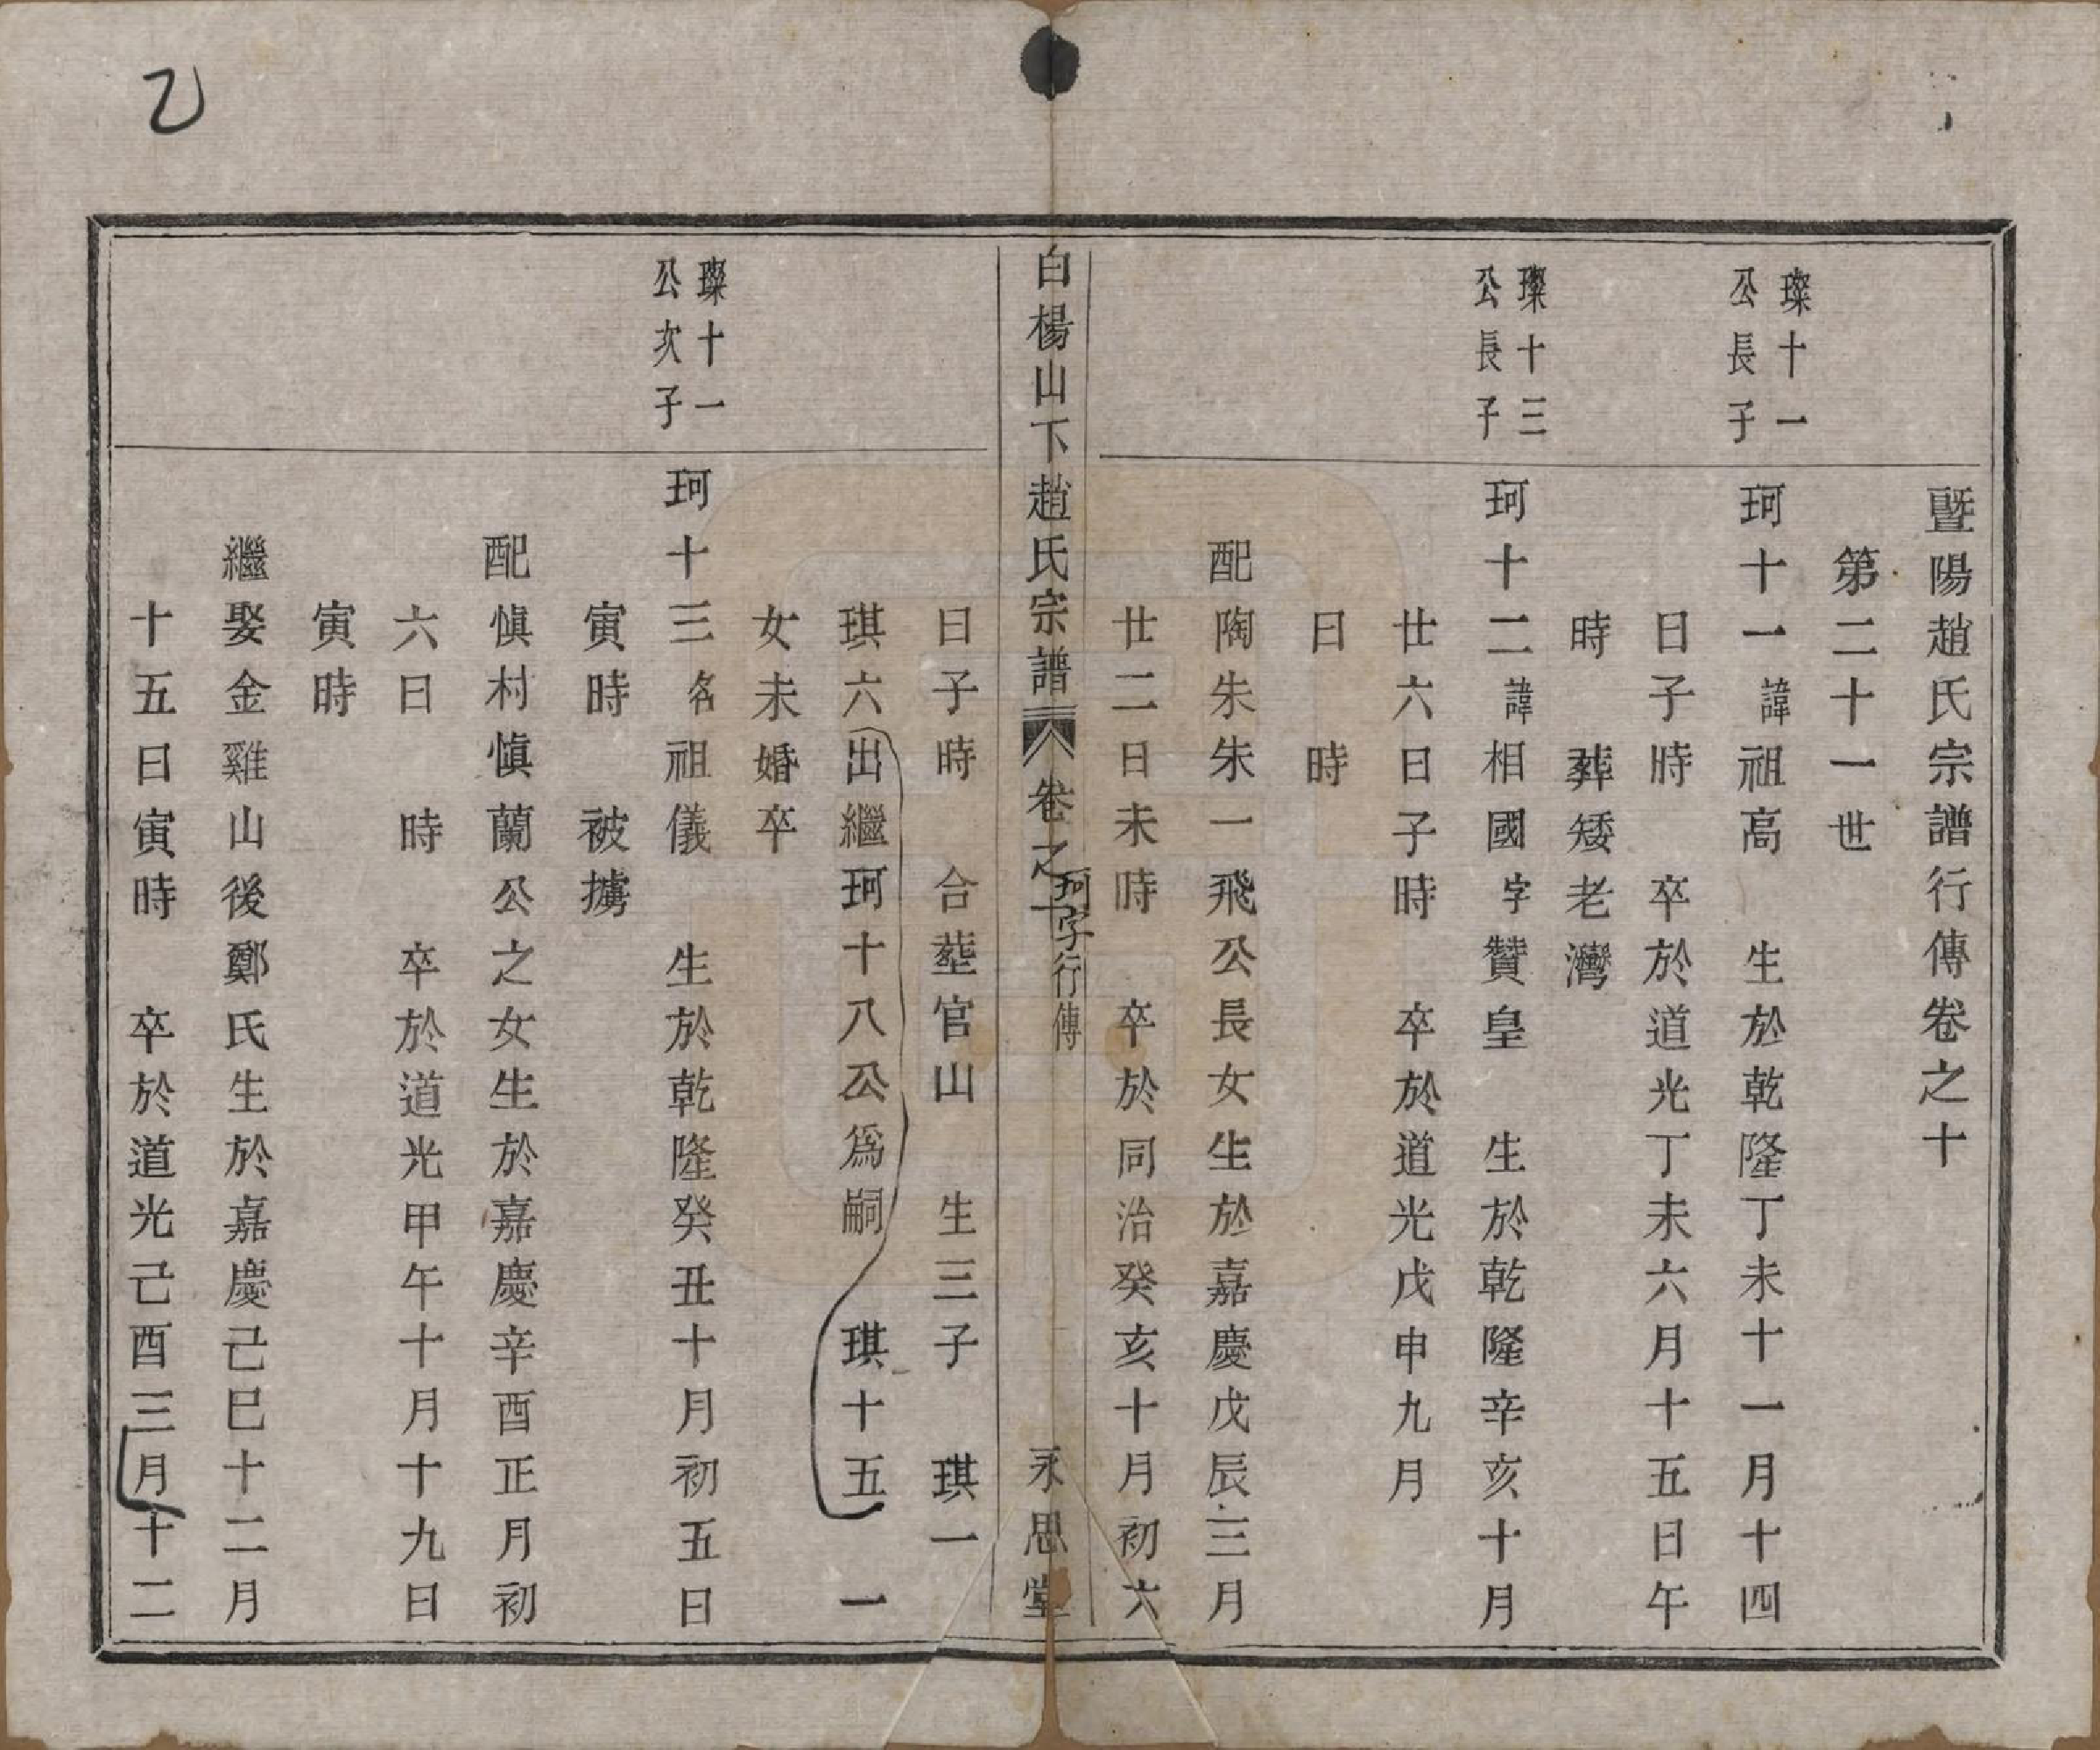 暨陽趙氏宗譜行傳卷之十
第二十一世
璨十一
公長子
珂十一諱祖高 生於乾隆丁未十一月十四
日子時 卒於道光丁未六月十五日午
時 葬矮老灣
璨十三
公長子
珂十二諱相國字贊皇 生於乾隆辛亥十月
廿六日子時 卒於道光戊申九月
日 時
配陶朱朱一飛公長女生於嘉慶戊辰三月
廿二日未時 卒於同治癸亥十月初六
白楊山下趙氏宗譜 卷之十 珂字行傳 永思堂
日子時 合塟官山 生三子 琪一
琪六出繼珂十八公爲嗣 琪十五 一
女未婚卒
璨十一
公次子
珂十三名祖儀 生於乾隆癸丑十月初五日
寅時 被擄
配愼村愼蘭公之女生於嘉慶辛酉正月初
六日 時 卒於道光甲午十月十九日
寅時
繼娶金雞山後鄭氏生於嘉慶己巳十二月
十五日寅時 卒於道光己酉三月十二
乙